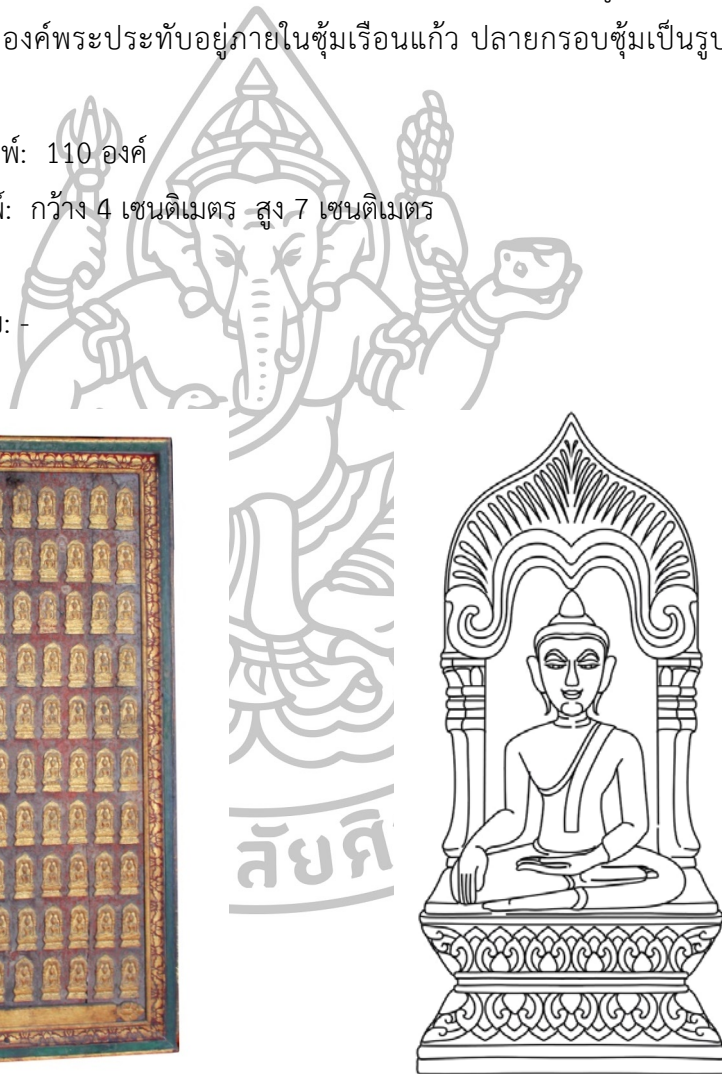 องค์พระประทับอยู่ภายในซุ้มเรือนแก้ว ปลายกรอบซุ้มเป็นรูป
พ์: 110 องค์
กว้าง 4 เซนติเมตร สูง 7 เซนติเมตร
: -
ลัยศิ